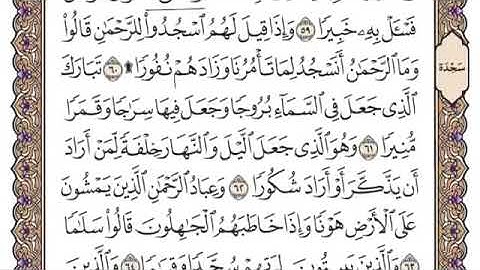 فَسْـَٔلْ بِهِۦ خَبِيرًا ٥٩ وَإِذَا قِيلَ لَهُمُ ٱسْجُدُوا۟ لِلرَّحْمَـٰنِ قَالُوا۟
وَمَا ٱلرَّحْمَـٰنُ أَنَسْجُدُ لِمَا تَأْمُرُنَا وَزَادَهُمْ نُفُورًا ۩ ٦٠ تَبَارَكَ
سَجْدَة
ٱلَّذِى جَعَلَ فِى ٱلسَّمَآءِ بُرُوجًا وَجَعَلَ فِيهَا سِرَٰجًا وَقَمَرًا
مُّنِيرًا ٦١ وَهُوَ ٱلَّذِى جَعَلَ ٱلَّيْلَ وَٱلنَّهَارَ خِلْفَةً لِّمَنْ أَرَادَ
أَن يَذَّكَّرَ أَوْ أَرَادَ شُكُورًا ٦٢ وَعِبَادُ ٱلرَّحْمَـٰنِ ٱلَّذِينَ يَمْشُونَ
عَلَى ٱلْأَرْضِ هَوْنًا وَإِذَا خَاطَبَهُمُ ٱلْجَـٰهِلُونَ قَالُوا۟ سَلَـٰمًا
٦٣ وَٱلَّذِينَ يَبِيتُونَ لِرَبِّهِمْ سُجَّدًا وَقِيَـٰمًا ٦٤ وَٱلَّذِينَ